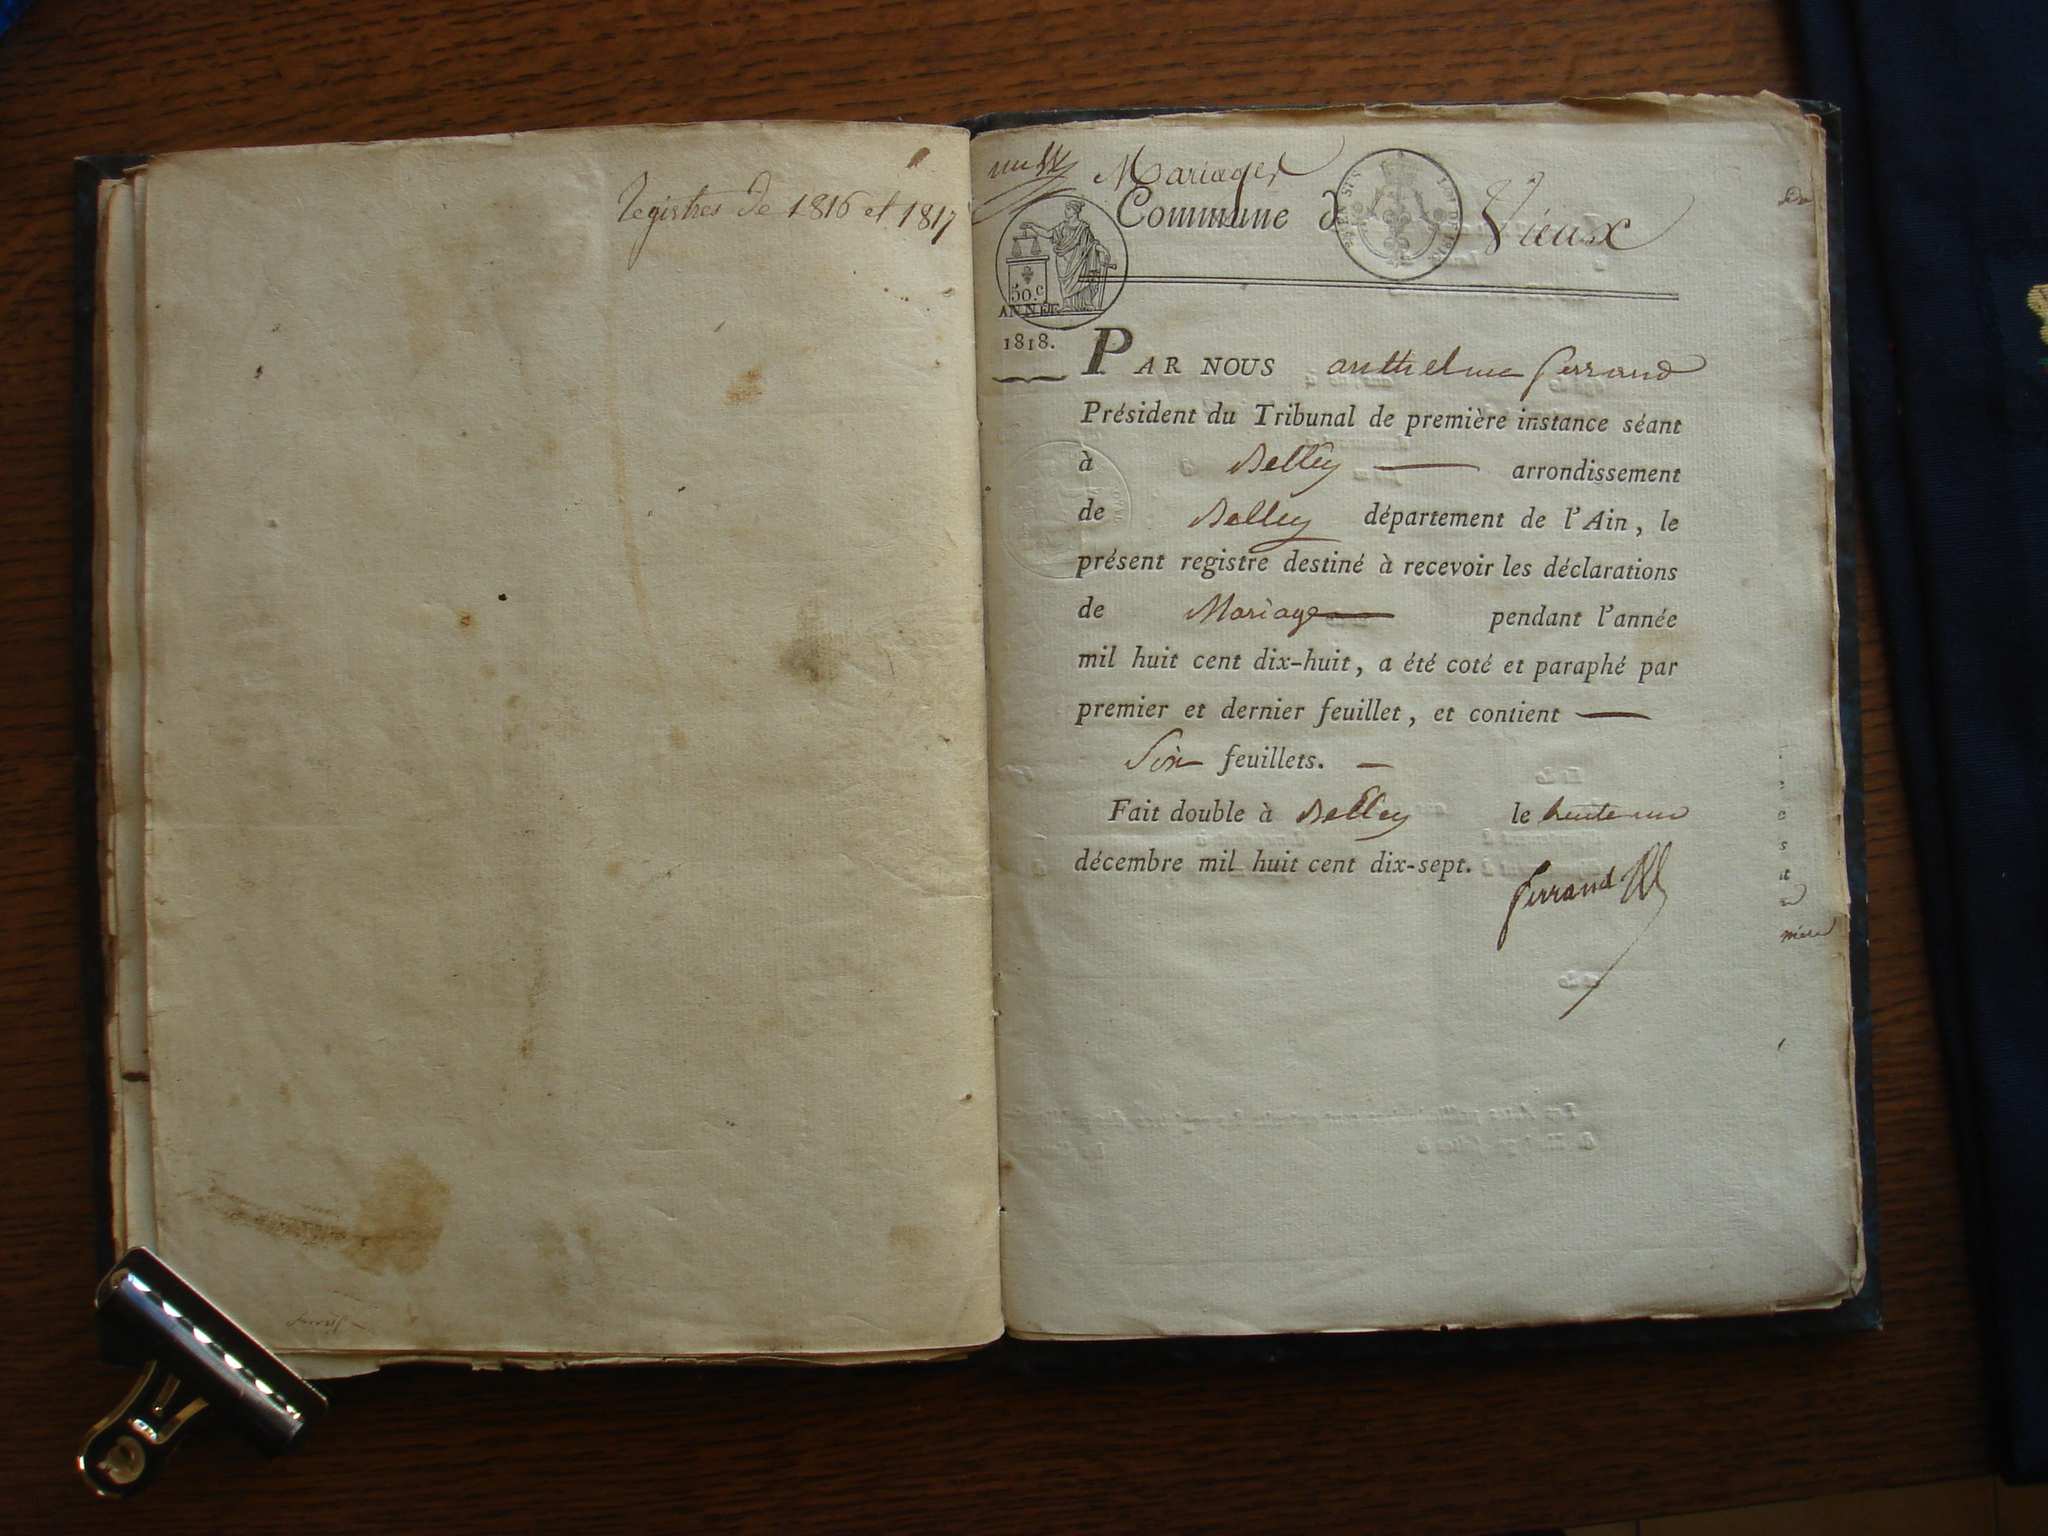 Registres de 1816 et 1817
Mariages
Commune de Vieux
50.c
ANNÉE
1818.
PAR NOUS anthelme ferrand
Président du Tribunal de première instance séant
à Belley arrondissement
de Belley département de l'Ain, le
présent registre destiné à recevoir les déclarations
de Mariage pendant l'année
mil huit cent dix-huit, a été coté et paraphé par
premier et dernier feuillet, et contient
Six feuillets.
Fait double à Belley le trente un
décembre mil huit cent dix-sept.
ferrand